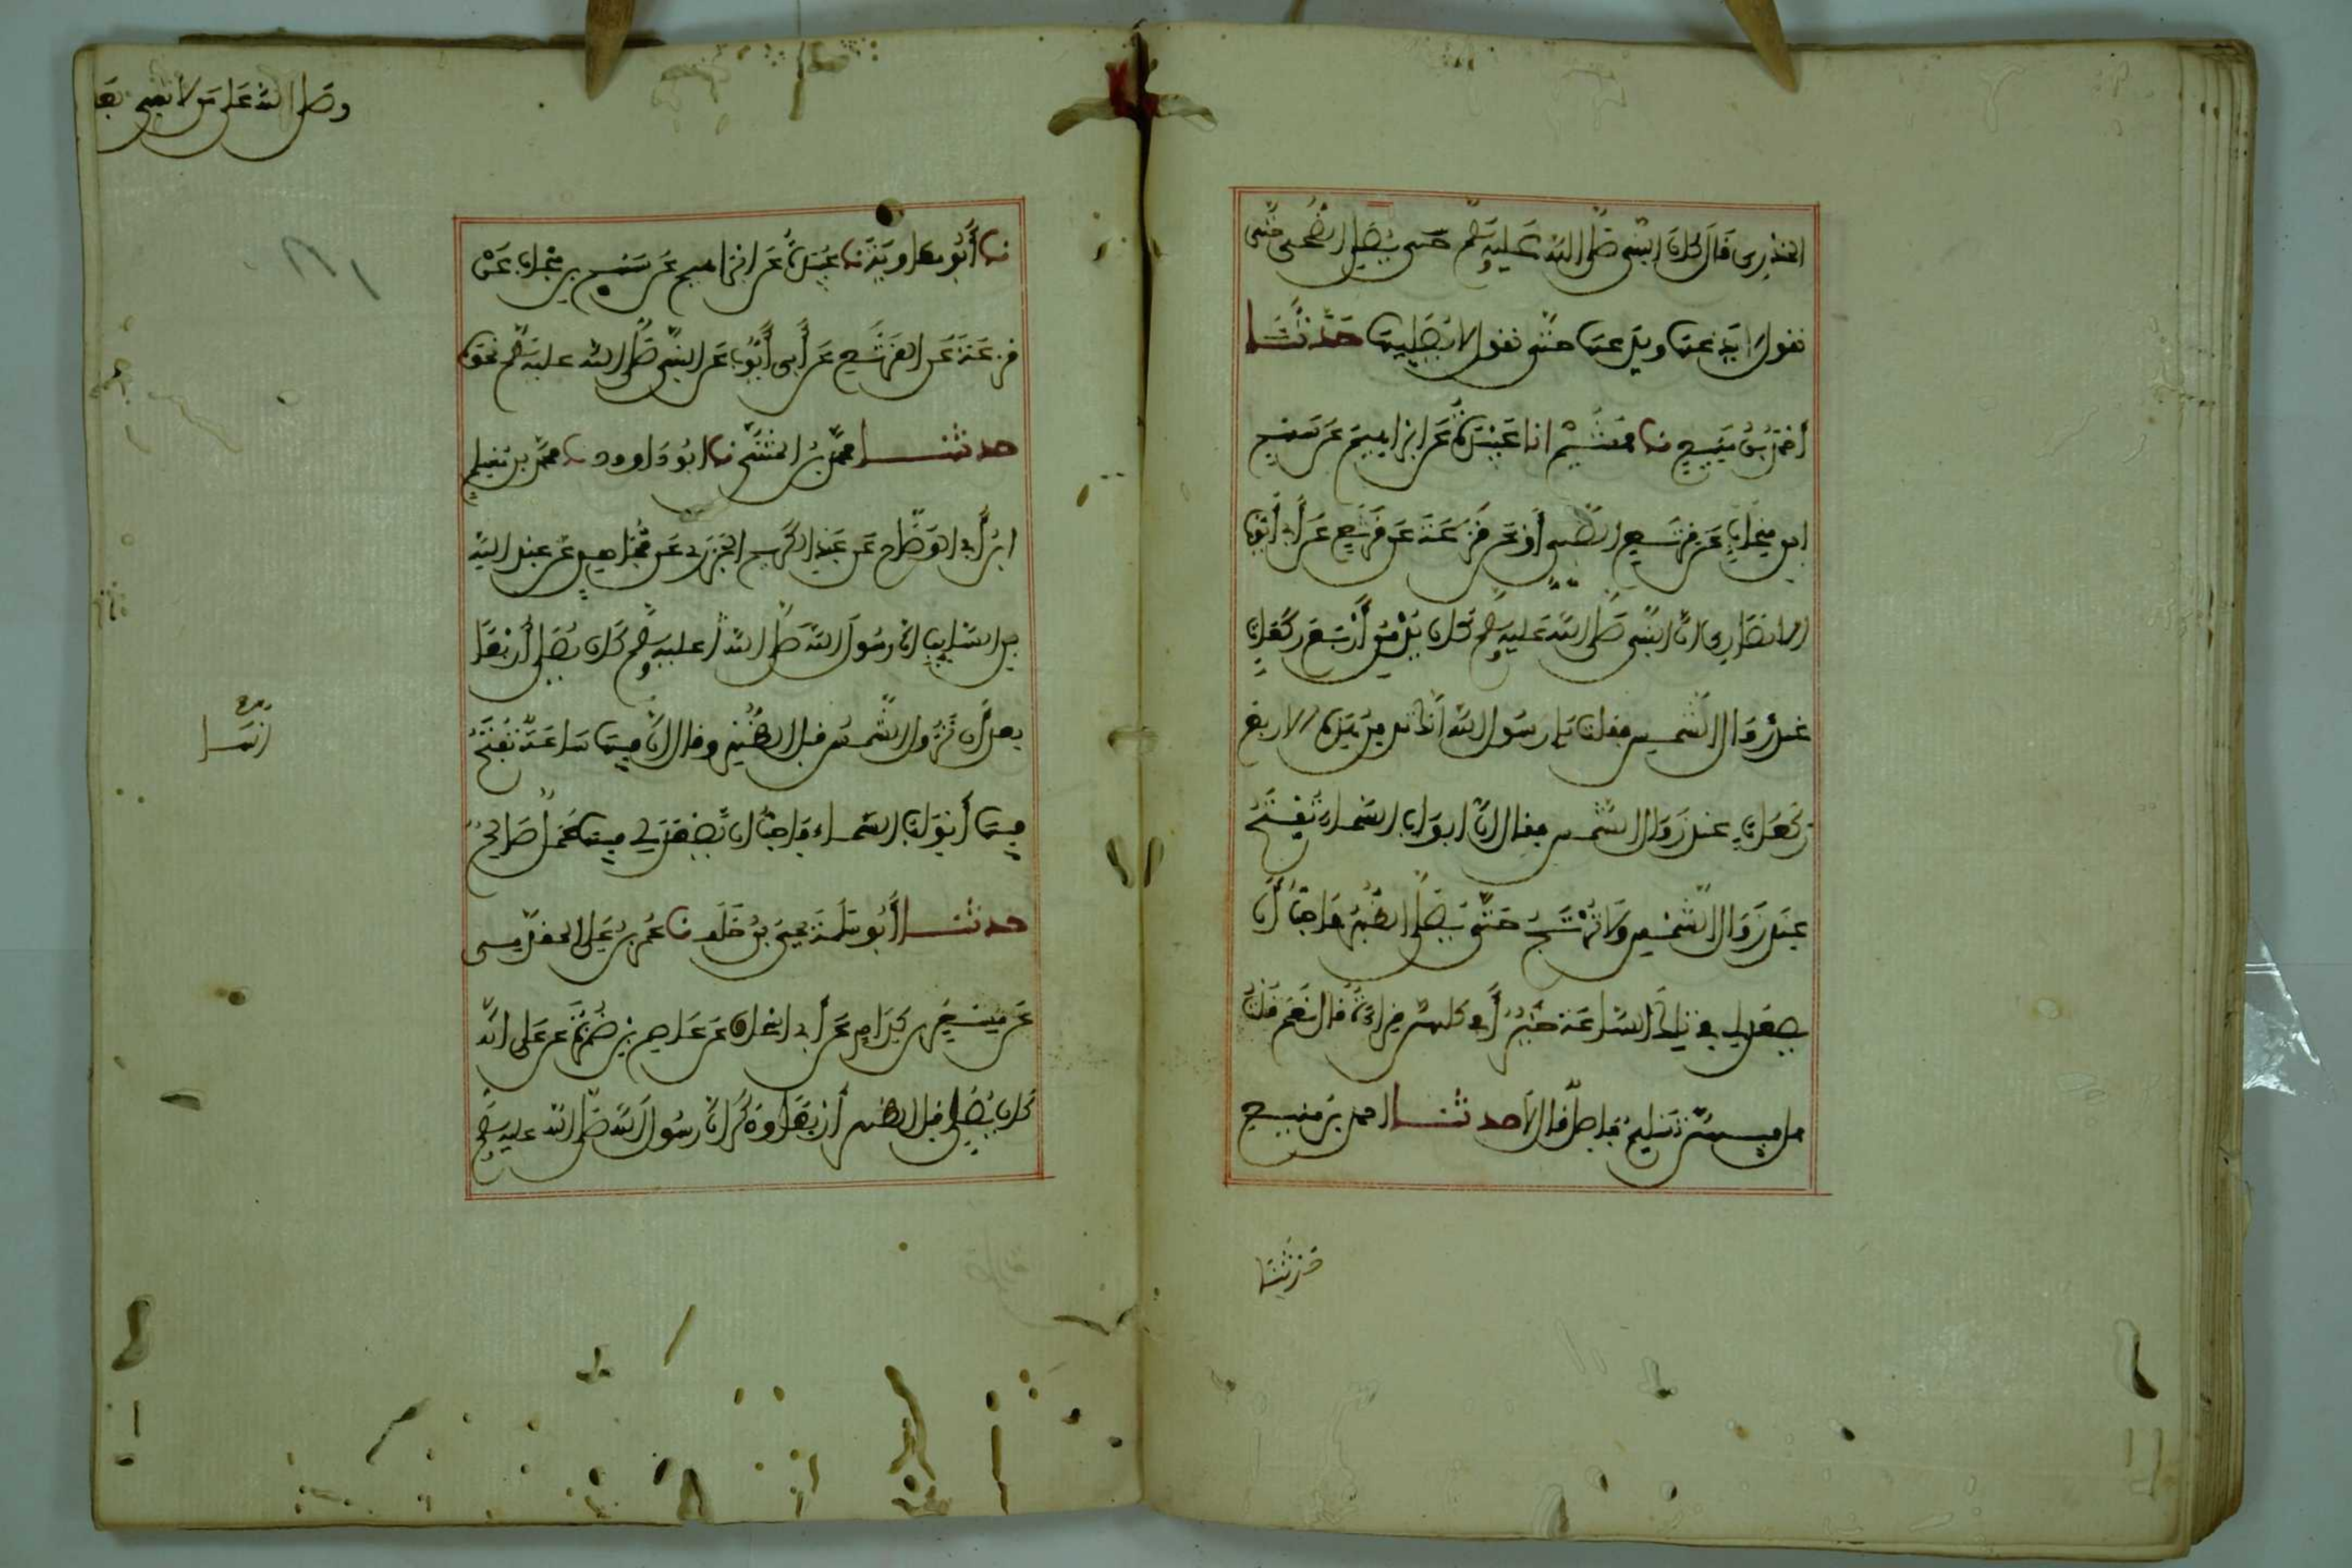 الخدري قال كان النبي صلى الله عليه وسلم يصلي الضحى حتى
نقول لا يدعها ويدعها حتى نقول لا يصليها حدثنا
أحمد بن منيع نا هشيم انا عبيدة عن ابراهيم عن سهم
ابن منجاب عن قرثع الضبي أو عن قزعة عن قرثع عن أبي أيوب
الانصاري ان النبي صلى الله عليه وسلم كان يدمن أربع ركعات
عند زوال الشمس فقلت يا رسول الله انك تدمن هذه الاربع
ركعات عند زوال الشمس فقال ان ابواب السماء تفتح
عند زوال الشمس ولا ترتج حتى يصلى الظهر فاحب أن
يصعد لي في تلك الساعة خير أفي كلهن قراءة قال نعم قلت
هل فيهن تسليم فاصل قال لا حدثنا احمد بن منيع
حدثنا
وصلى الله على من لا نبي بعد
نا أبو معاوية نا عبيدة عن ابراهيم عن سهم بن منجاب عن
قزعة عن القرثع عن أبي أيوب عن النبي صلى الله عليه وسلم نحوه
حدثنا محمد بن المثنى نا ابو داوود نا محمد بن مسلم
ابن أبي الوضاح عن عبد الكريم الجزري عن مجاهد عن عبد الله
بن السايب ان رسول الله صلى الله عليه وسلم كان يصلي أربعا
بعد أن تزول الشمس قبل الظهر وقال انها ساعة تفتح
فيها أبواب السماء فاحب ان يصعد لي فيها عمل صالح
حدثنا أبو سلمة يحيى بن خلف نا عمر بن علي المقدمي
عن مسعر بن كدام عن أبي اسحاق عن عاصم بن ضمرة عن علي انه
كان يصلي قبل الظهر أربعا وذكر ان رسول الله صلى الله عليه وسلم